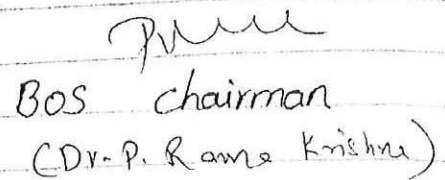 BOS chairman
(Dr. P. Rama Krishna)